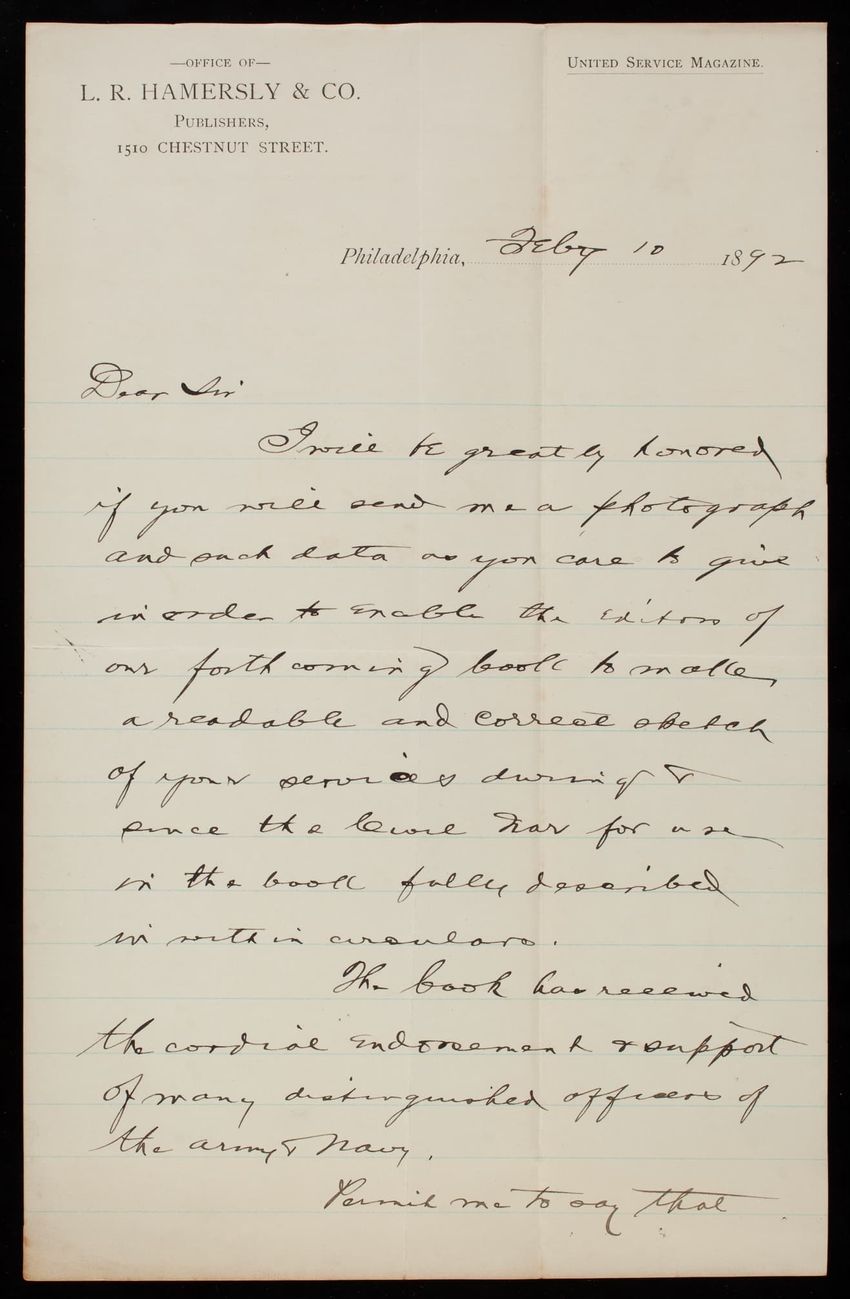 —OFFICE OF—
L. R. HAMERSLY & CO.
PUBLISHERS,
1510 CHESTNUT STREET.
UNITED SERVICE MAGAZINE.
Philadelphia, Feby 10 1892
Dear Sir
I will be greatly honored
if you will send me a photograph
and such data as you care to give
in order to enable the editors of
our forthcoming book to make
a readable and correct sketch
of your services during &
since the Civil War for use
in the book fully described
in within circulars.
The book has received
the cordial endorsement & support
of many distinguished officers of
the army & Navy.
Permit me to say that